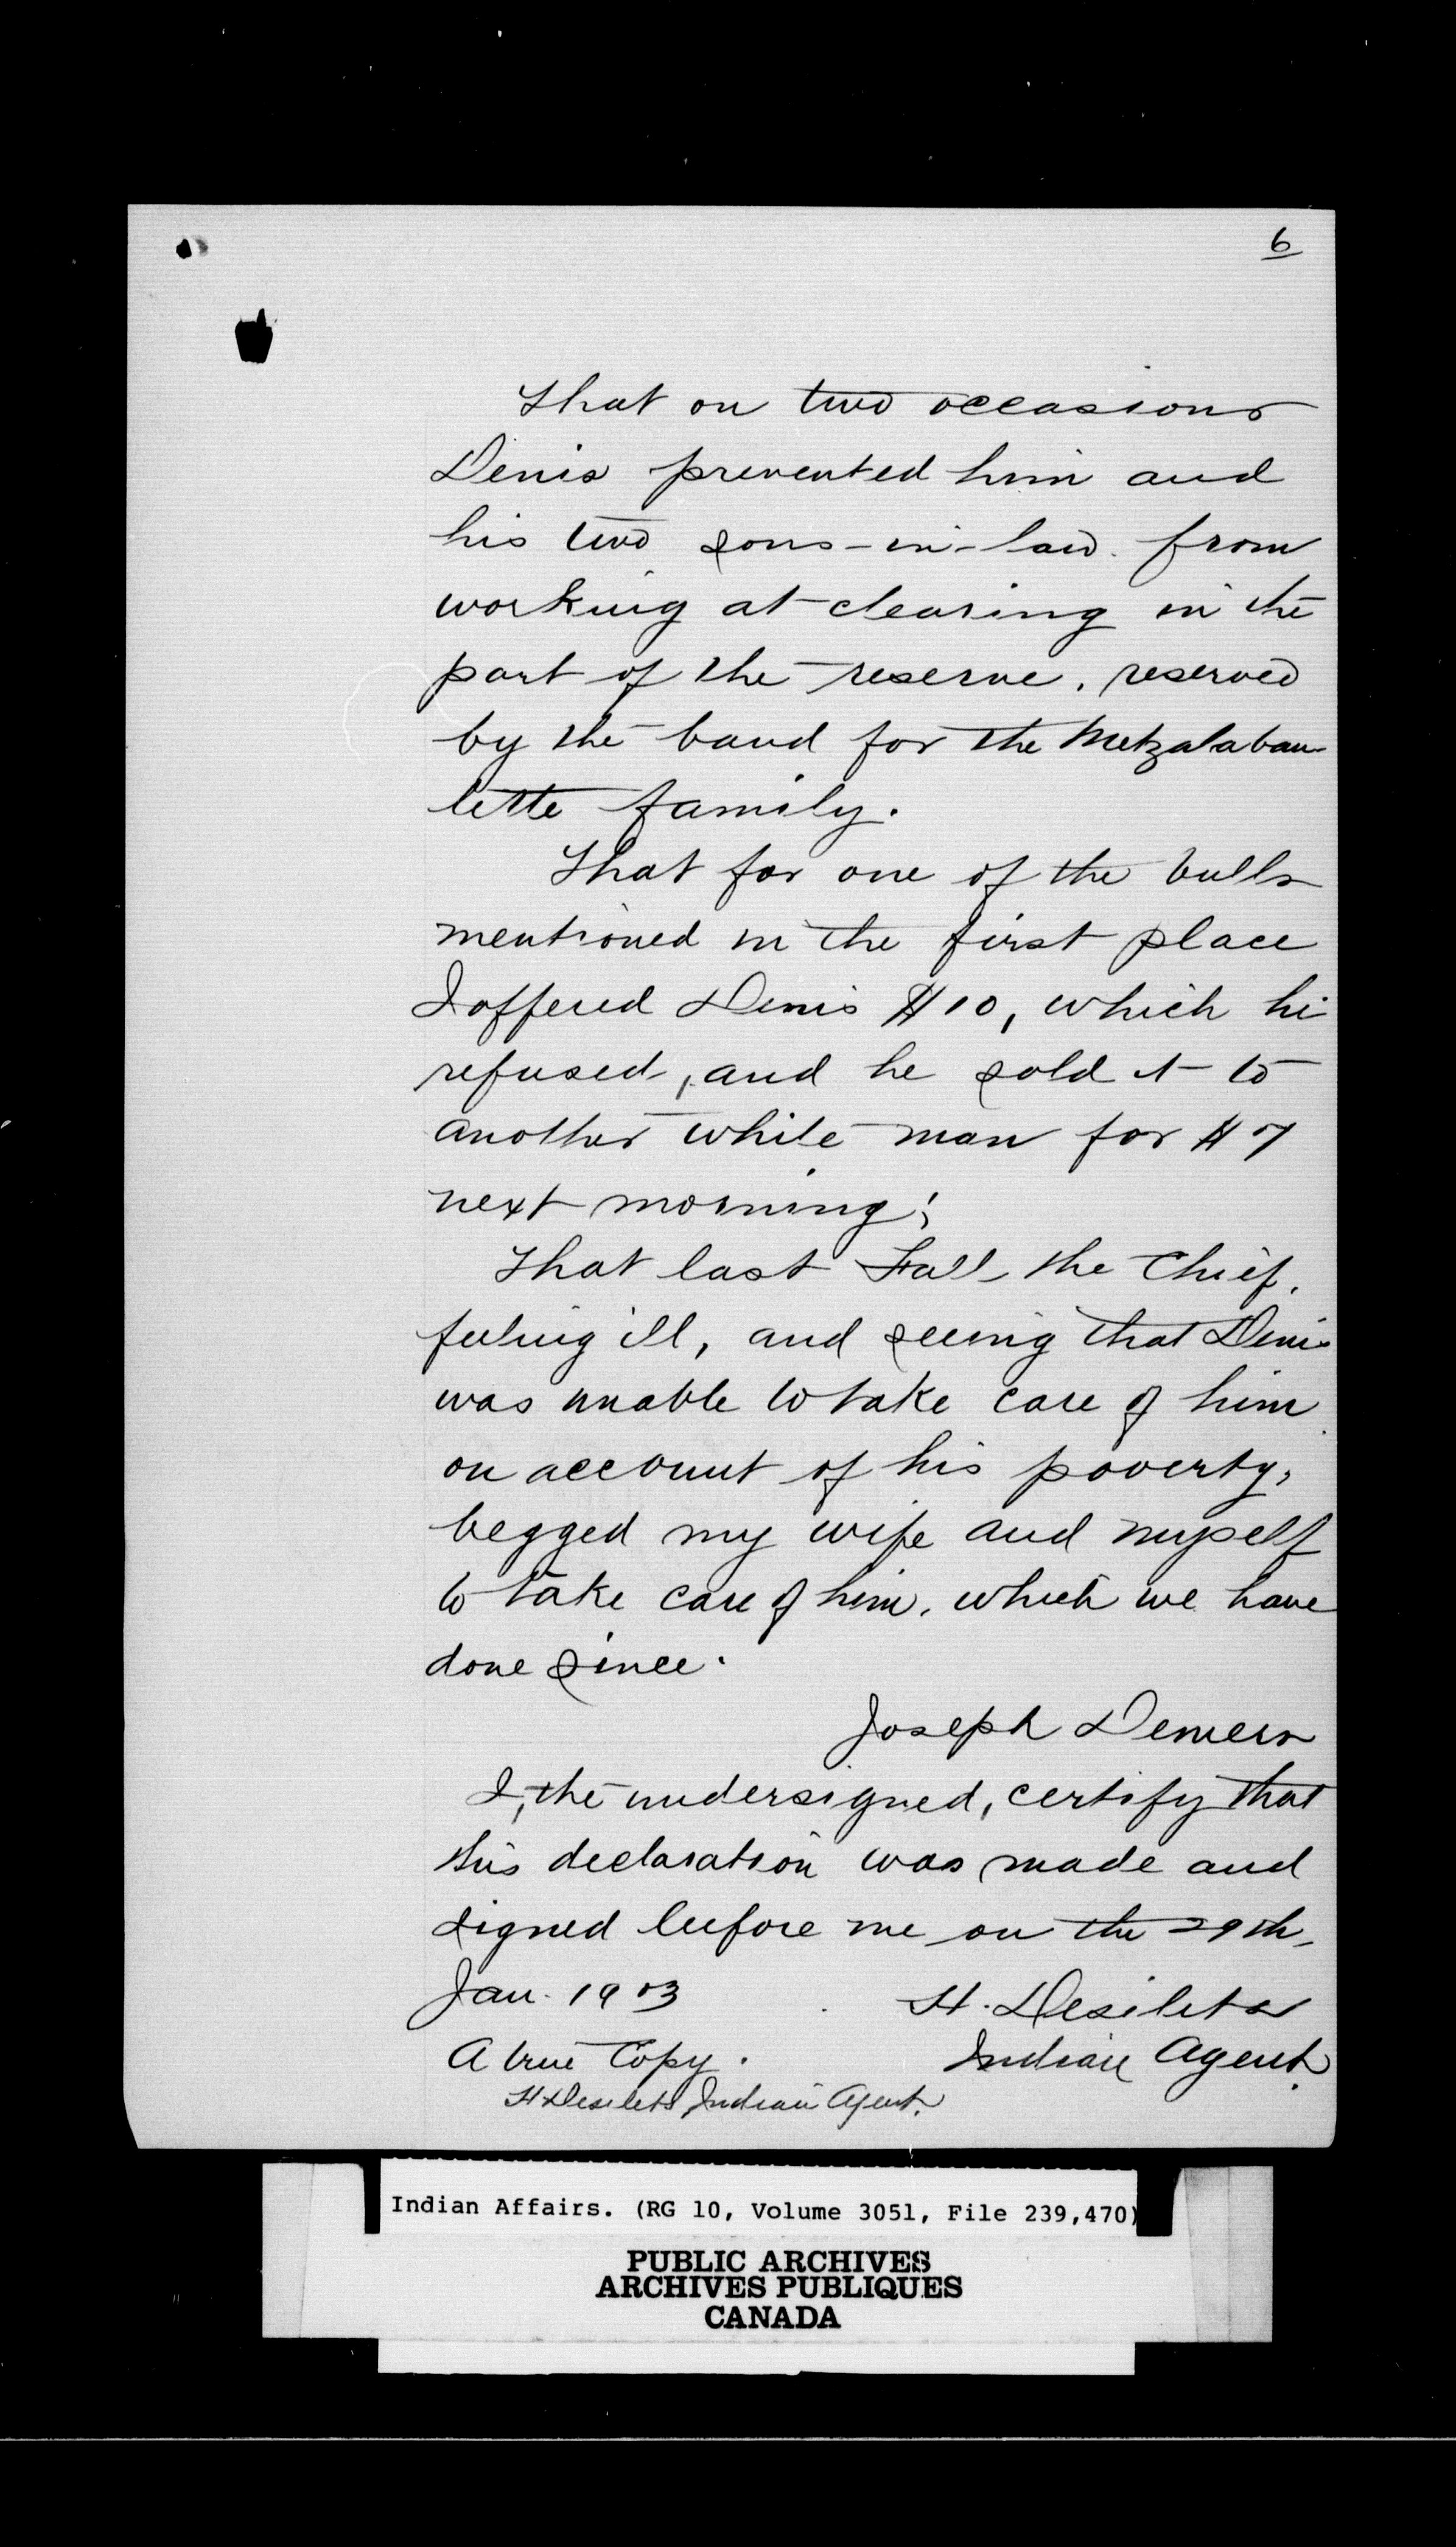 6
That on two occasions
Denis prevented him and
his two sons-in-law from
working at clearing in the
part of the reserve, reserved
by the band for the Metzalaban-
lette family.
That for one of the bulls
mentioned in the first place
I offered Denis $10, which he
refused, and he sold it to
another white man for $7
next morning;
That last Fall the Chief,
feeling ill, and seeing that Denis
was unable to take care of him
on account of his poverty,
begged my wife and myself
to take care of him, which we have
done since.
Joseph Demers
I, the undersigned, certify that
this declaration was made and
signed before me on the 29th,
Jan. 1903
H. Desilets
A true Copy.
Indian Agent.
H Desilets Indian Agent.
Indian Affairs. (RG 10, Volume 3051, File 239,470)
PUBLIC ARCHIVES
ARCHIVES PUBLIQUES
CANADA